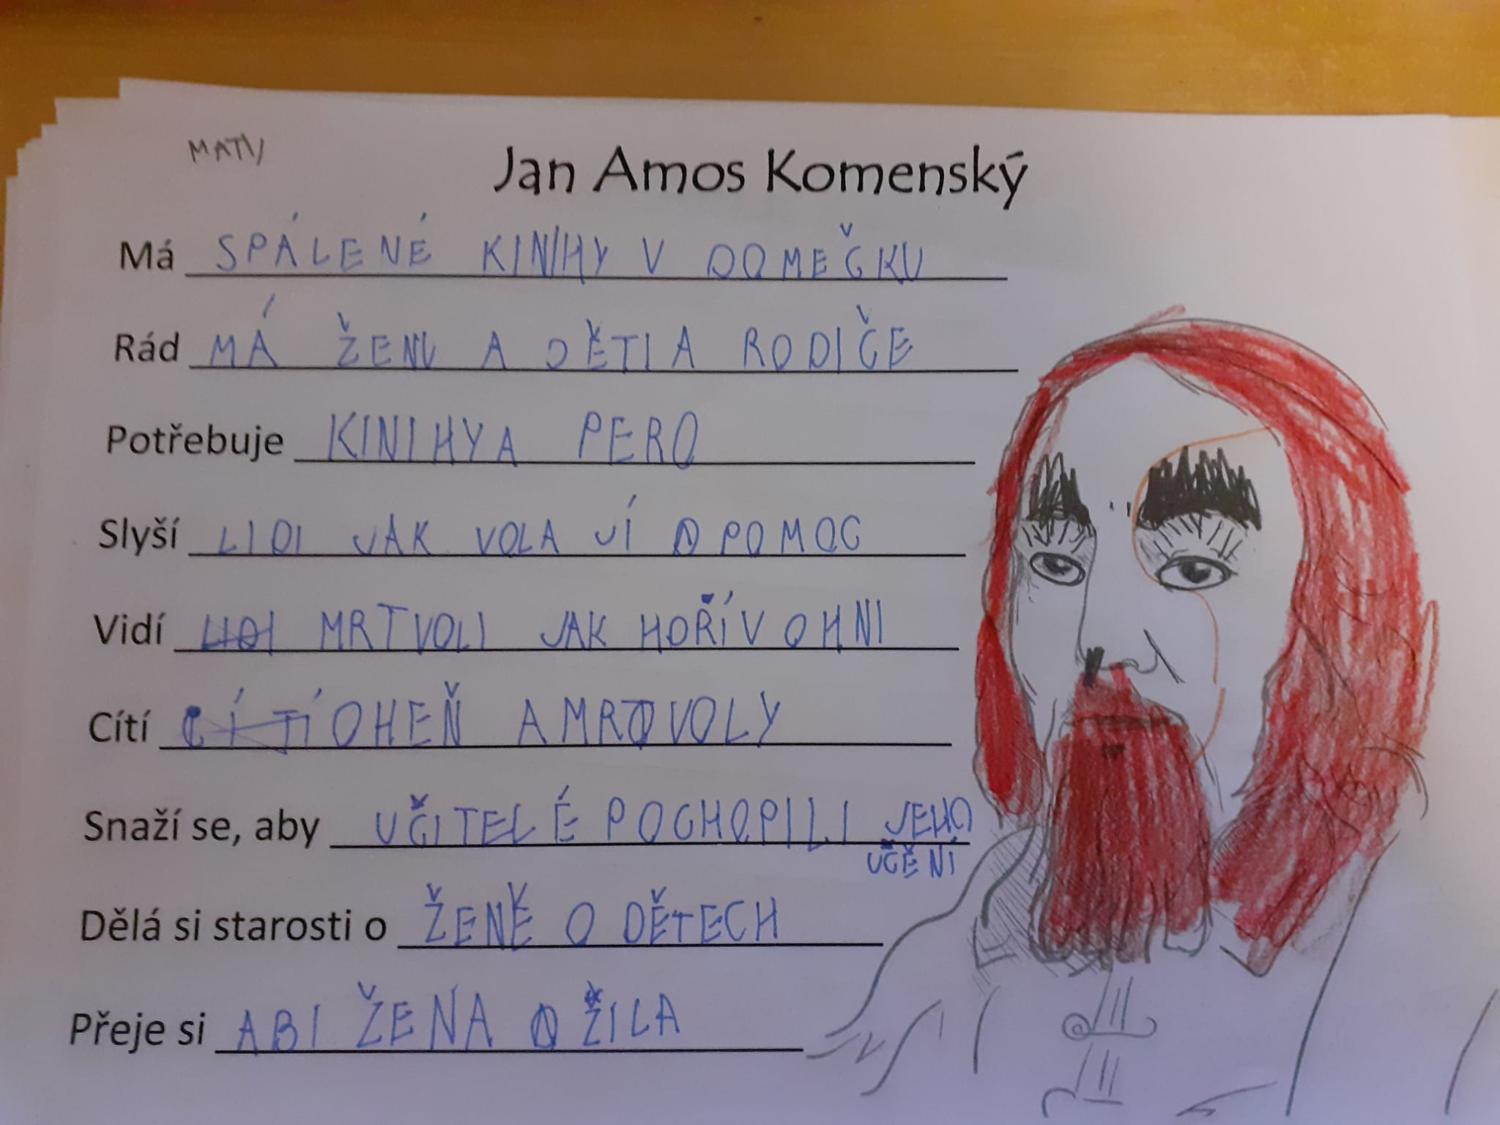 MATY
Jan Amos Komenský
Má SPÁLENÉ KINIHY V DOMEČKU
Rád MÁ ŽENU A DĚTI A RODIČE
Potřebuje KINIHY A PERO
Slyší LIDI JAK VOLA JÍ O POMOC
Vidí LIDI MRTVOLI JAK HOŘÍ V OHNI
Cítí CÍTÍ OHEŇ A MRTVOLY
Snaží se, aby UČITELÉ POCHOPILI JEHO
UČENÍ
Dělá si starosti o ŽENĚ O DĚTECH
Přeje si ABI ŽENA OŽILA